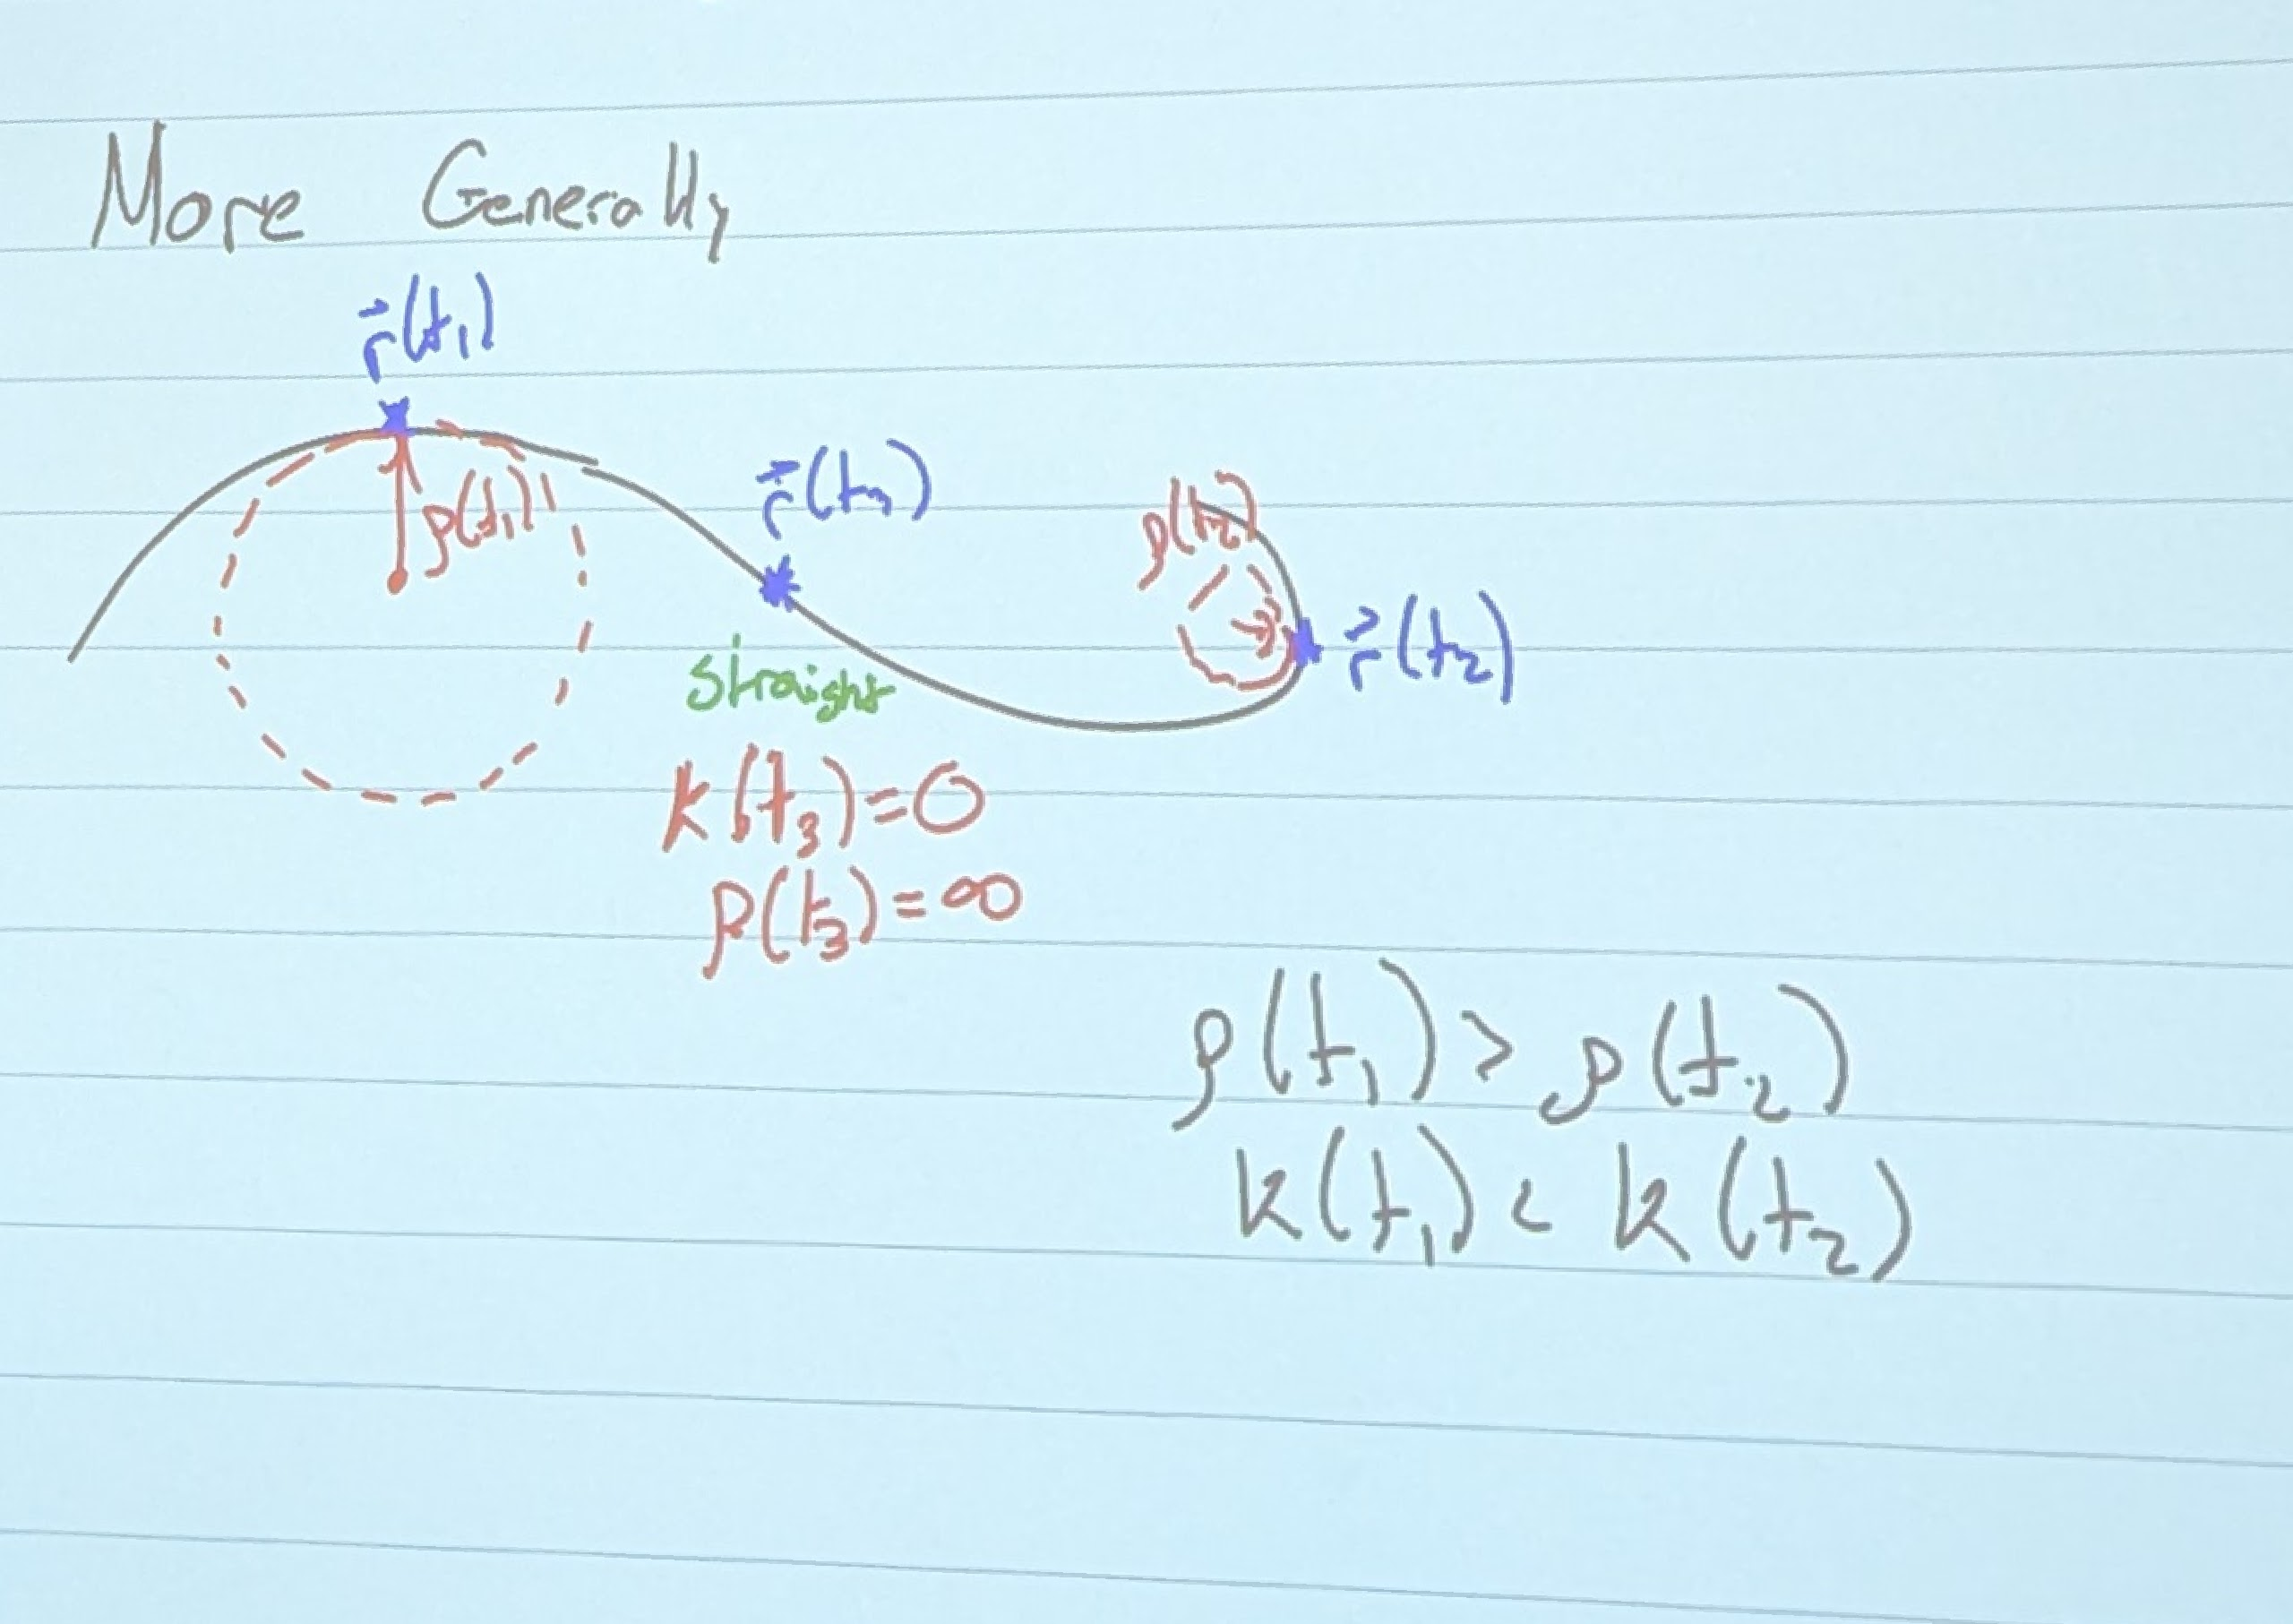 More Generally
r⃗(t₁)
r⃗(t₃)
ρ(t₁)
ρ(t₂)
r⃗(t₂)
straight
k(t₃)=0
ρ(t₃)=∞
ρ(t₁)>ρ(t₂)
k(t₁)<k(t₂)